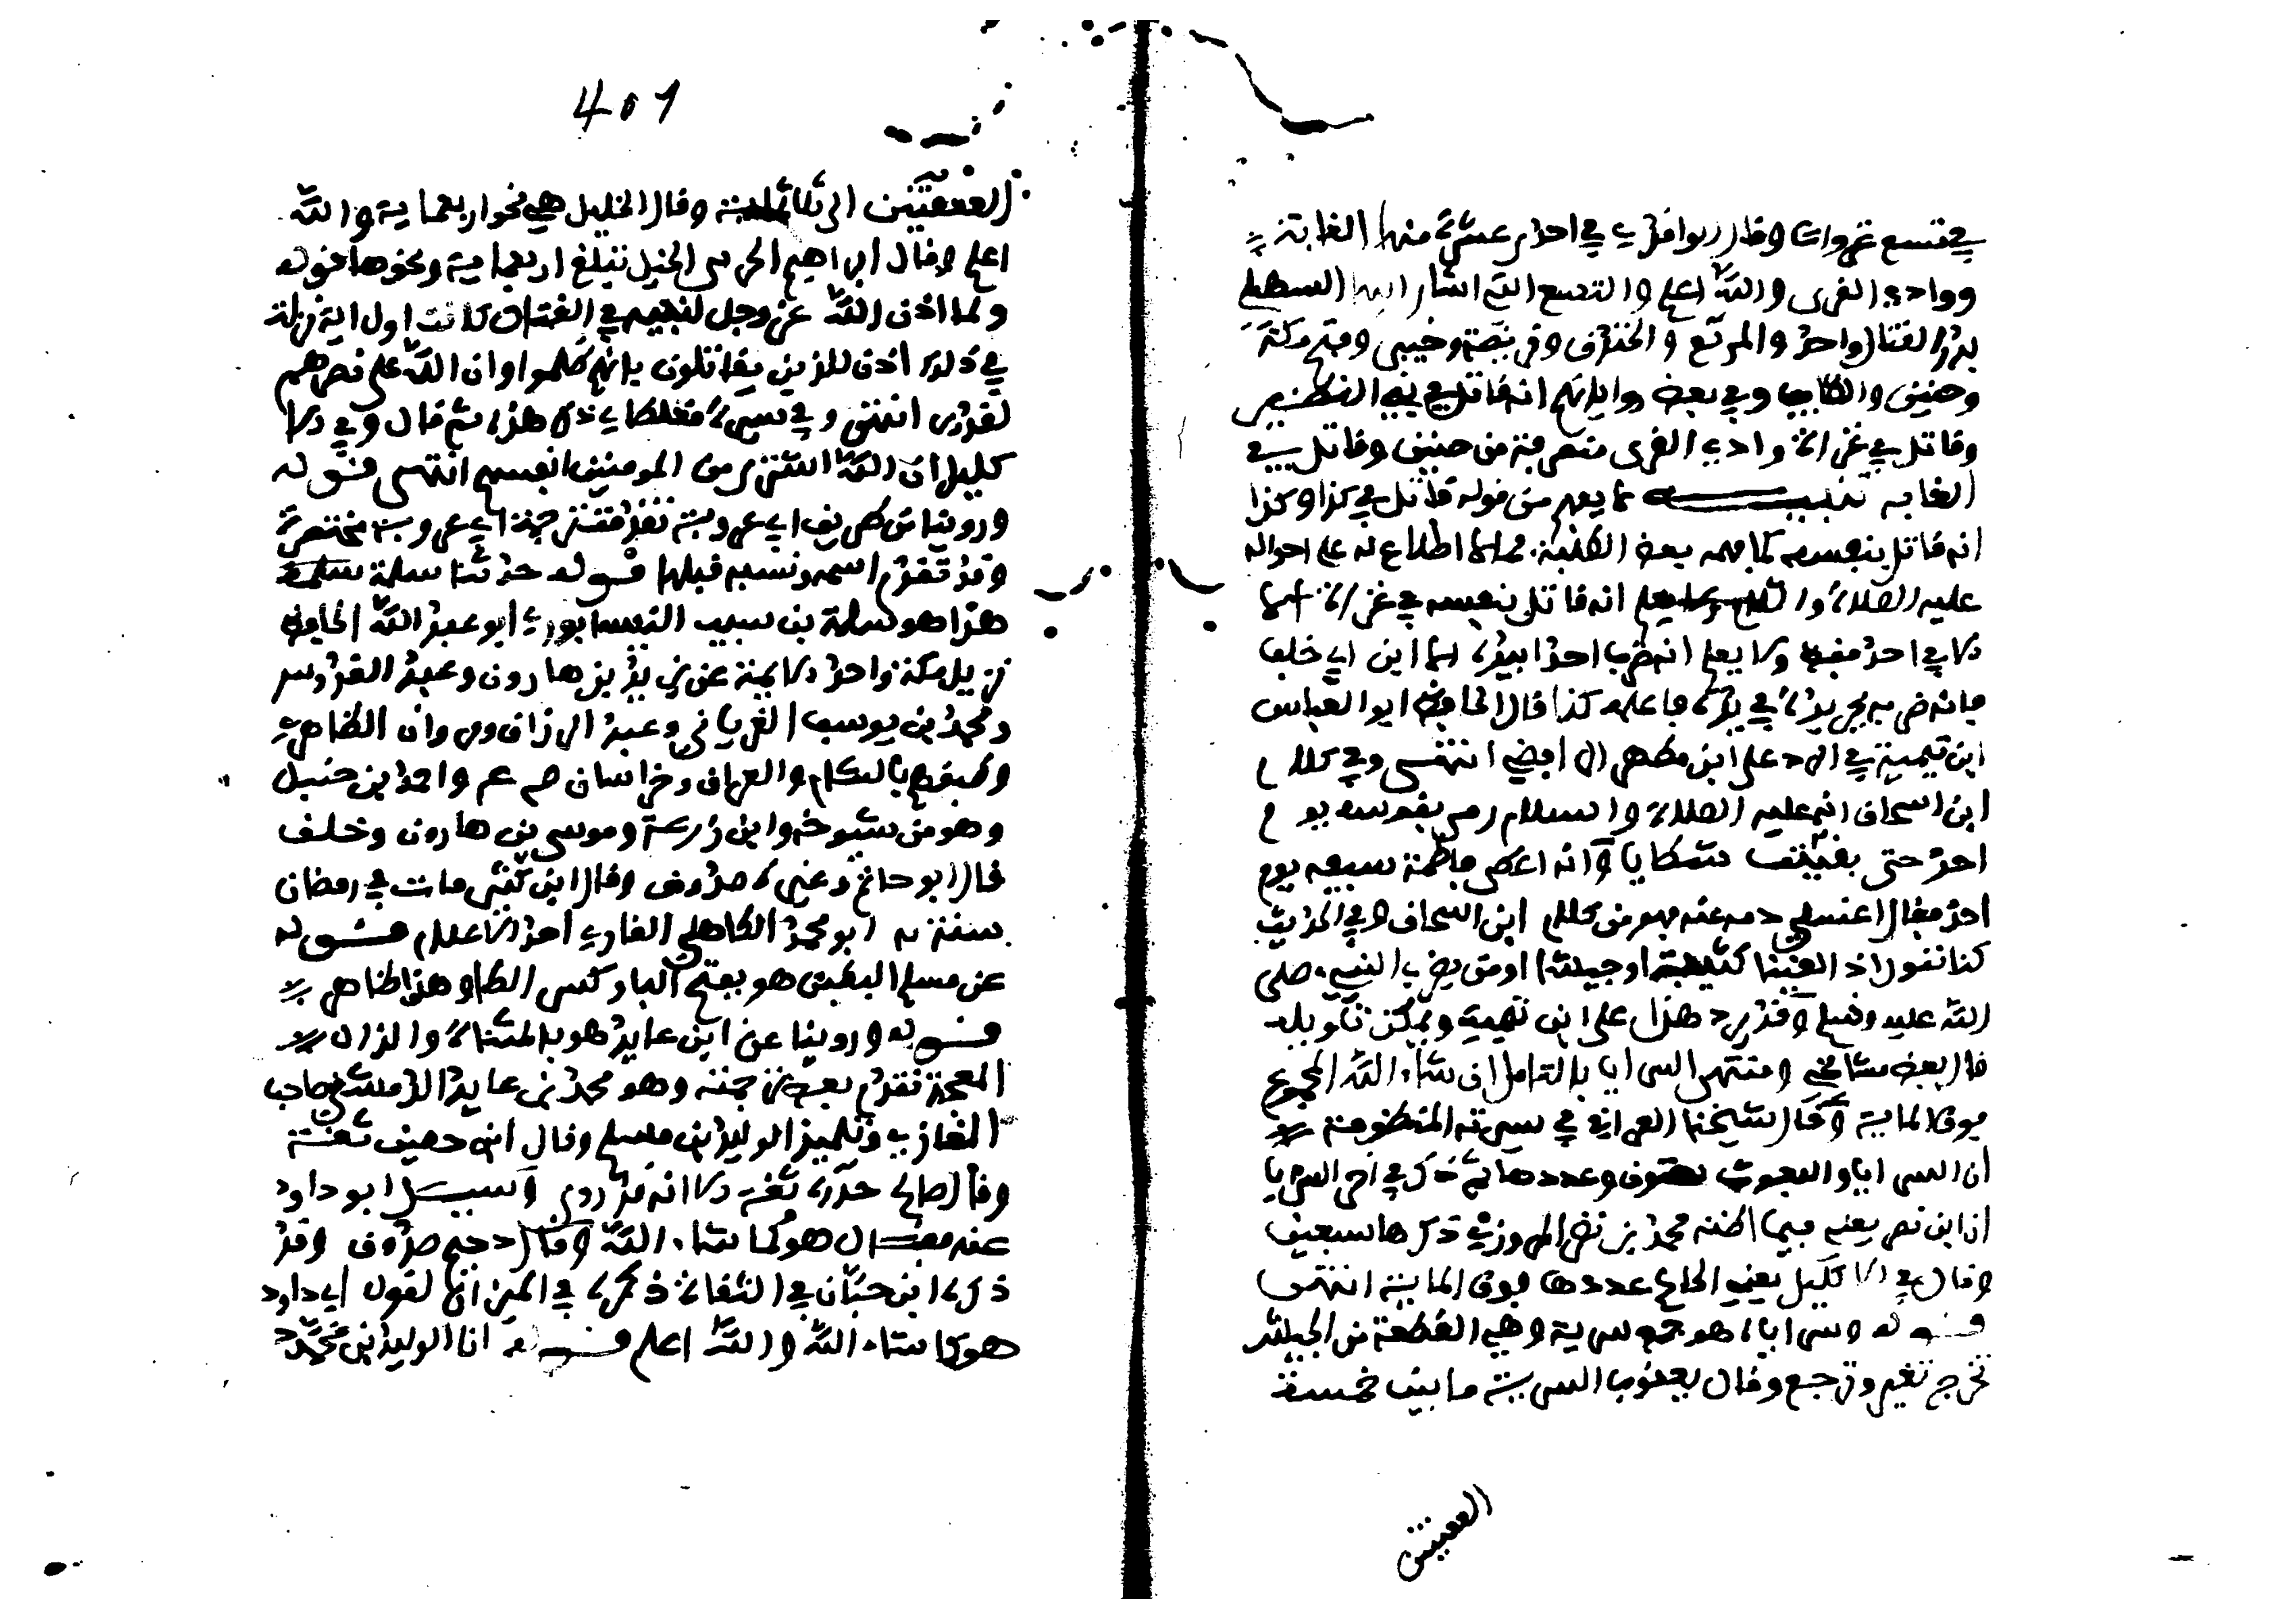 في تسع غزوات وقال الواقدي في احدى عشرة منها الغابة
ووادي القرى والله اعلم والتسع التي اشار اليها السهيلي
بدر القتال واحد والمريسع والخندق وقريضة وخيبر وفتح مكة
وحنين والطايف وفي بعض رواياتهم انه قاتل في بني النضير
وقاتل في غزاة وادي القرى منصرفه من حنين وقاتل في
الغابه تنبيه لا يفهم من قوله قاتل في كذا وكذا
انه قاتل بنفسه كما فهمه بعض الطلبة ممن لا اطلاع له على احواله
عليه الصلاة والسلام ولا يعلم انه قاتل بنفسه في غزاة الا
في احد فقط ولا يعلم انه ضرب احدا بيده الا ابن ابي خلف
فانه ضربه بحربة في يده فاعلمه كذا قال الحافظ ابو العباس
ابن تيمية في الرد على ابن مطهر الرافضي انتهى وفي كلام
ابن اسحاق انه عليه الصلاة والسلام رمى بقوسه يوم
احد حتى بقيت شظايا وانه اعطى فاطمة سيفه يوم
احد فقال اغسلي دمه عنه فهو من كلام ابن اسحاق وفي الحديث
كنا نقول اذ القينا كتيبة او جيشا اول من يضرب النبي صلى
الله عليه وسلم وقد يرد هذا على ابن تيمية ويمكن تاويله
قال بعض مشايخي ومنتهى السرايا بالتامل ان شاء الله المجموع
فوق الماية وقال شيخنا العراقي في سيرته المنظومة
ان السرايا والبعوث ستون وعددها ثم ذكر في اخر السرايا
ان ابن نصر يعني فيما اظنه محمد بن نصر المروزي ذكرها سبعين
وقال في الاكليل يعني الحاكم عددها فوق الماية انتهى
قوله وسراياه هو جمع سرية وهي القطعة من الجيش
تخرج تغير وترجع وقال يعقوب السرية ما بين خمسة
العقيقين
401
الى ثلاثماية وقال الخليل هي نحو اربعماية والله
اعلم وقال ابراهيم الحربي الخيل تبلغ اربعماية ونحوها قوله
ولما اذن الله عز وجل لنبيه في القتال كانت اول اية نزلت
في ذلك اذن للذين يقاتلون بانهم ظلموا وان الله على نصرهم
لقدير انتهى وفي سيرة مغلطاي ذكر هذا ثم قال وفي الا
كليل ان الله اشترى من المومنين انفسهم انتهى قوله
وروينا من طريف ابي عروبة تقدمت ترجمة ابي عروبة مختصرة
وقد تقدم اسمه ونسبه قبلها قوله حدثنا سلمة سلمة
هذا هو سلمة بن شبيب النيسابوري ابو عبد الله الحافظ
نزيل مكة واحد الايمة عن يزيد بن هارون وعبد القدوس
ومحمد بن يوسف الفريابي وعبد الرزاق ومروان الطاطري
وطبقتهم بالشام والعراق وخراسان م عم واحمد بن حنبل
وهو من شيوخه وابن زرعة وموسى بن هارون وخلف
قال ابو حاتم وغيره صدوق وقال ابن كثير مات في رمضان
سنة ابو محمد الكاهلي القاري احد الاعلام قوله
عن مسلم البطين هو بفتح البا وكسر الطا وهذا ظاهر
قوله وروينا عن ابن عايذ هو بالمثناة والذال
المعجمة تقدم بعض ترجمته وهو محمد بن عايذ الدمشقي صاحب
المغازي وتلميذ الوليد بن مسلم وقال ابن معين ثقة
وقال صالح جزرة ثقة الا انه قدري وسيل ابو داود
عنه فقال هو كما شاء الله وقال دحيم صدوق وقد
ذكره ابن حبان في الثقات ذكره في الميزان لقول ابي داود
هو كما شاء الله والله اعلم قوله انا الوليد بن محمد